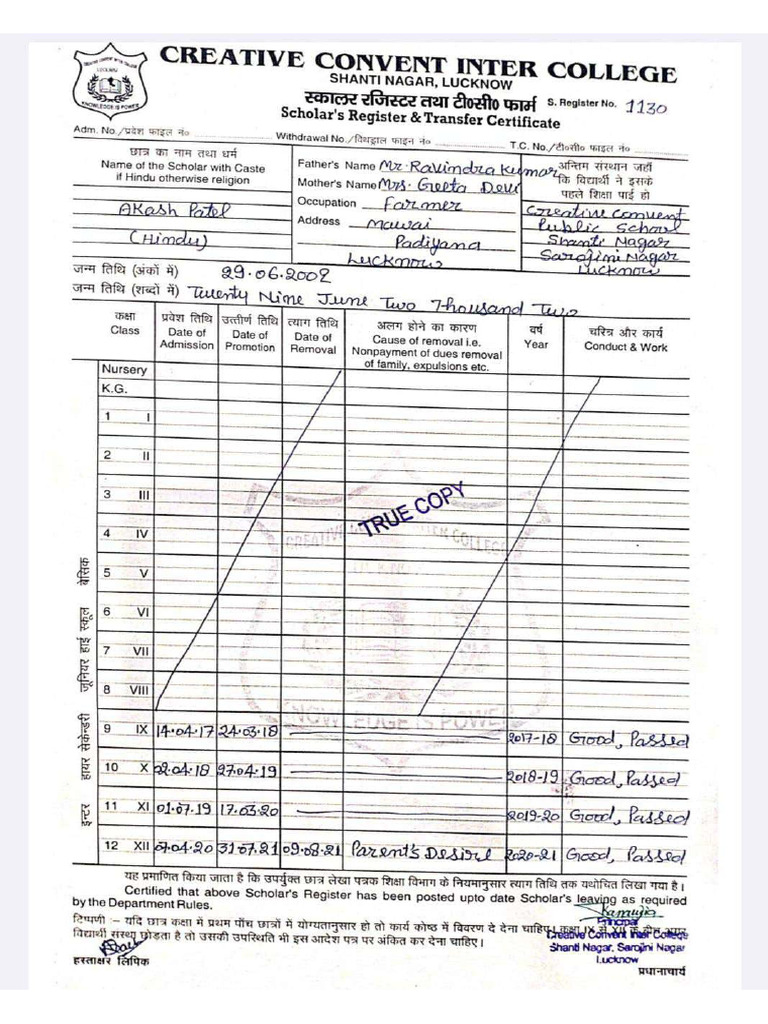 CREATIVE CONVENT INTER COLLEGE
LUCKNOW
KNOWLEDGE IS POWER
SHANTI NAGAR, LUCKNOW
स्कालर रजिस्टर तथा टी०सी० फार्म S. Register No. 1130
Scholar's Register & Transfer Certificate
Adm. No./प्रवेश फाइल नं० Withdrawal No./विथड्राल फाइन नं० T.C. No./टी०सी० फाइल नं०
छात्र का नाम तथा धर्म
Name of the Scholar with Caste
if Hindu otherwise religion
Akash Patel
(Hindu)
Father's Name Mr. Ravindra Kumar
Mother's Name Mrs. Geeta Devi
Occupation Farmer
Address Mawai
Padiyana
Lucknow
अन्तिम संस्थान जहाँ
कि विद्यार्थी ने इसके
पहले शिक्षा पाई हो
Creative Convent
Public School
Shanti Nagar
Sarojini Nagar
Lucknow
जन्म तिथि (अंकों में) 29.06.2002
जन्म तिथि (शब्दों में) Twenty Nine June Two Thousand Two
कक्षा Class
प्रवेश तिथि Date of Admission
उत्तीर्ण तिथि Date of Promotion
त्याग तिथि Date of Removal
अलग होने का कारण Cause of removal i.e. Nonpayment of dues removal of family, expulsions etc.
वर्ष Year
चरित्र और कार्य Conduct & Work
Nursery
K.G.
1 I
2 II
3 III
4 IV
5 V
6 VI
7 VII
8 VIII
बेसिक
जूनियर हाई स्कूल
हायर सेकेन्डरी
इन्टर
TRUE COPY
CREATIVE CONVENT INTER COLLEGE
LUCKNOW
KNOWLEDGE IS POWER
9 IX 14.04.17 24.03.18 2017-18 Good, Passed
10 X 02.04.18 27.04.19 2018-19 Good, Passed
11 XI 01.07.19 17.03.20 2019-20 Good, Passed
12 XII 07.04.20 31.07.21 09.08.21 Parent's Desire 2020-21 Good, Passed
यह प्रमाणित किया जाता है कि उपर्युक्त छात्र लेखा पत्रक शिक्षा विभाग के नियमानुसार त्याग तिथि तक यथोचित लिखा गया है।
Certified that above Scholar's Register has been posted upto date Scholar's leaving as required
by the Department Rules.
टिप्पणी :– यदि छात्र कक्षा में प्रथम पाँच छात्रों में योग्यतानुसार हो तो कार्य कोष्ठ में विवरण दे देना चाहिए। कक्षा IX से XII के बीच अगर
विद्यार्थी संस्था छोड़ता है तो उसकी उपस्थिति भी इस आदेश पत्र पर अंकित कर देना चाहिए।
हस्ताक्षर लिपिक
Principal
Creative Convent Inter College
Shanti Nagar, Sarojini Nagar
Lucknow
प्रधानाचार्य